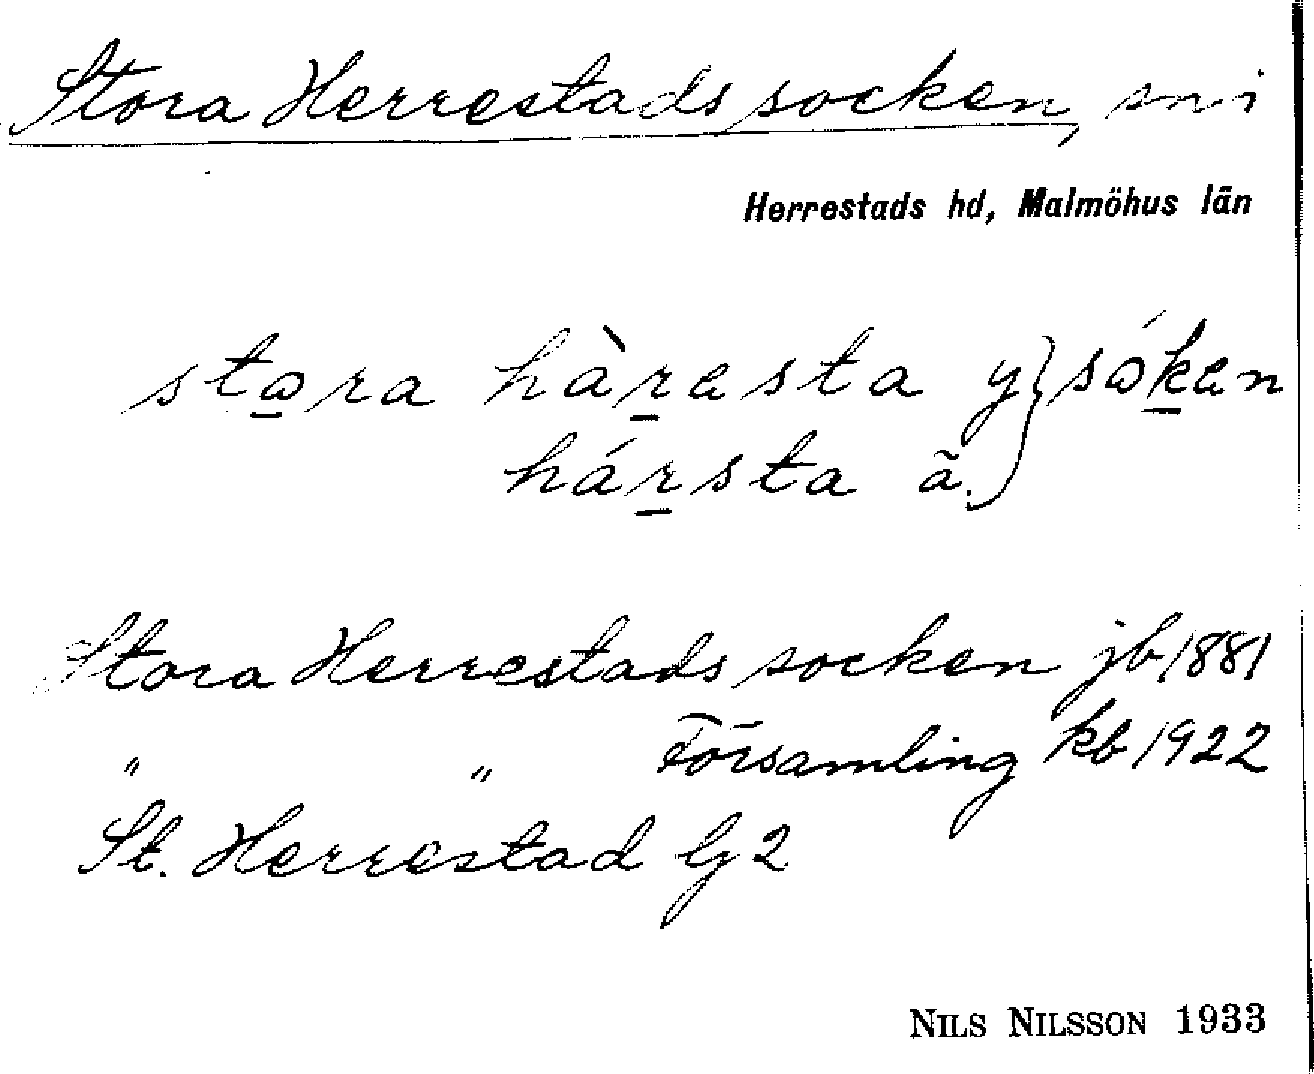 Stora Herrestads socken, sn i
Herrestads hd, Malmöhus län
stora hàresta y} sóken
hársta ä.}
Stora Herrestads socken jb 1881
" " Församling kb 1922
St. Herrestad G 2
NILS NILSSON 1933